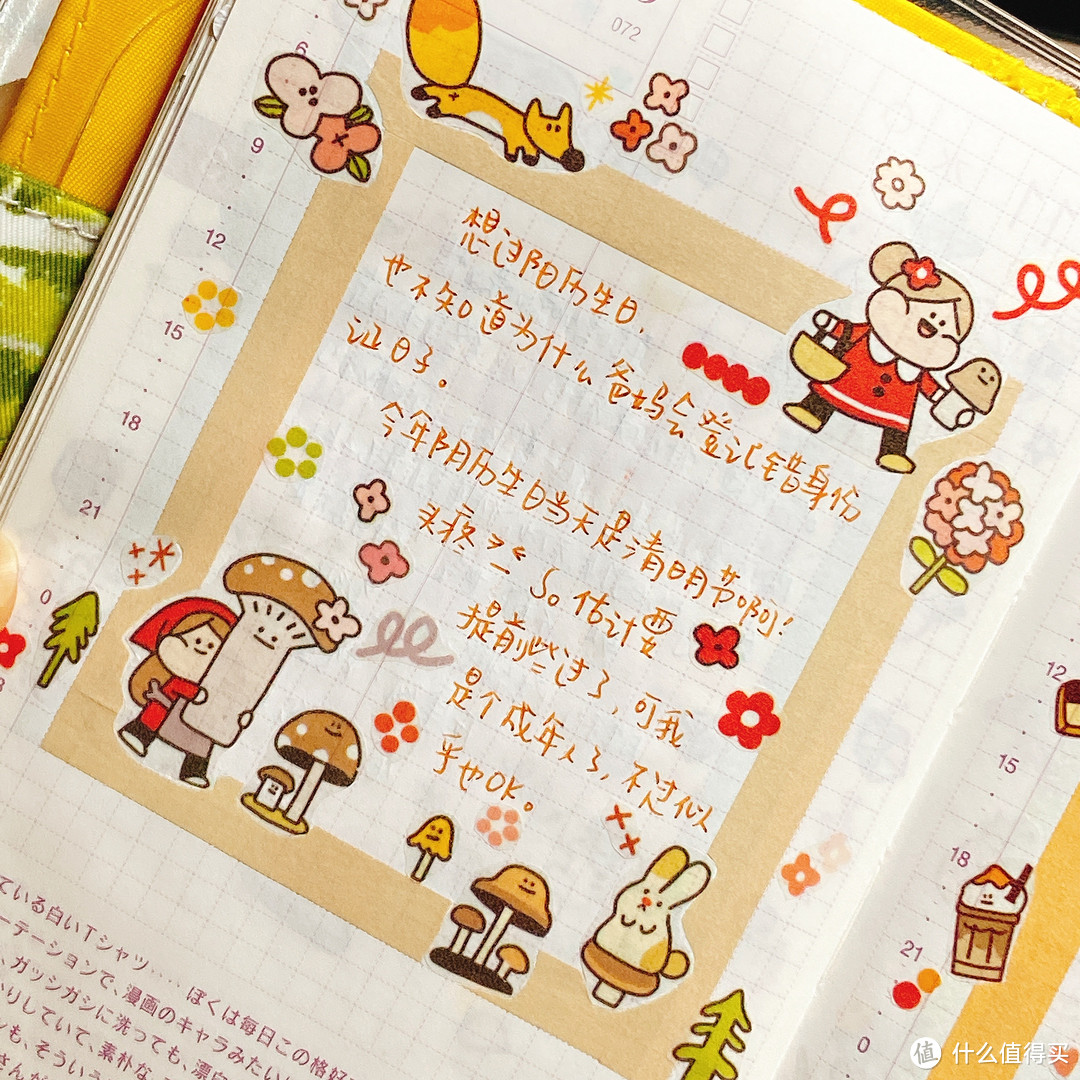 072
6
9
12
15
18
21
0
想过阳历生日,
也不知道为什么爸妈会登记错身份
证日子。
今年阴历生日当天是清明节啊!
头疼 So 估计要
提前些过了,可我
是个成年人了,不过似
乎也OK。
ている白いTシャツ……ぼくは毎日この格好
ーテーションで、漫画のキャラみたい
、ガッシガシに洗っても、漂白
りしていて、素朴な
も、そういう
さんが
12
15
18
21
0
值 什么值得买